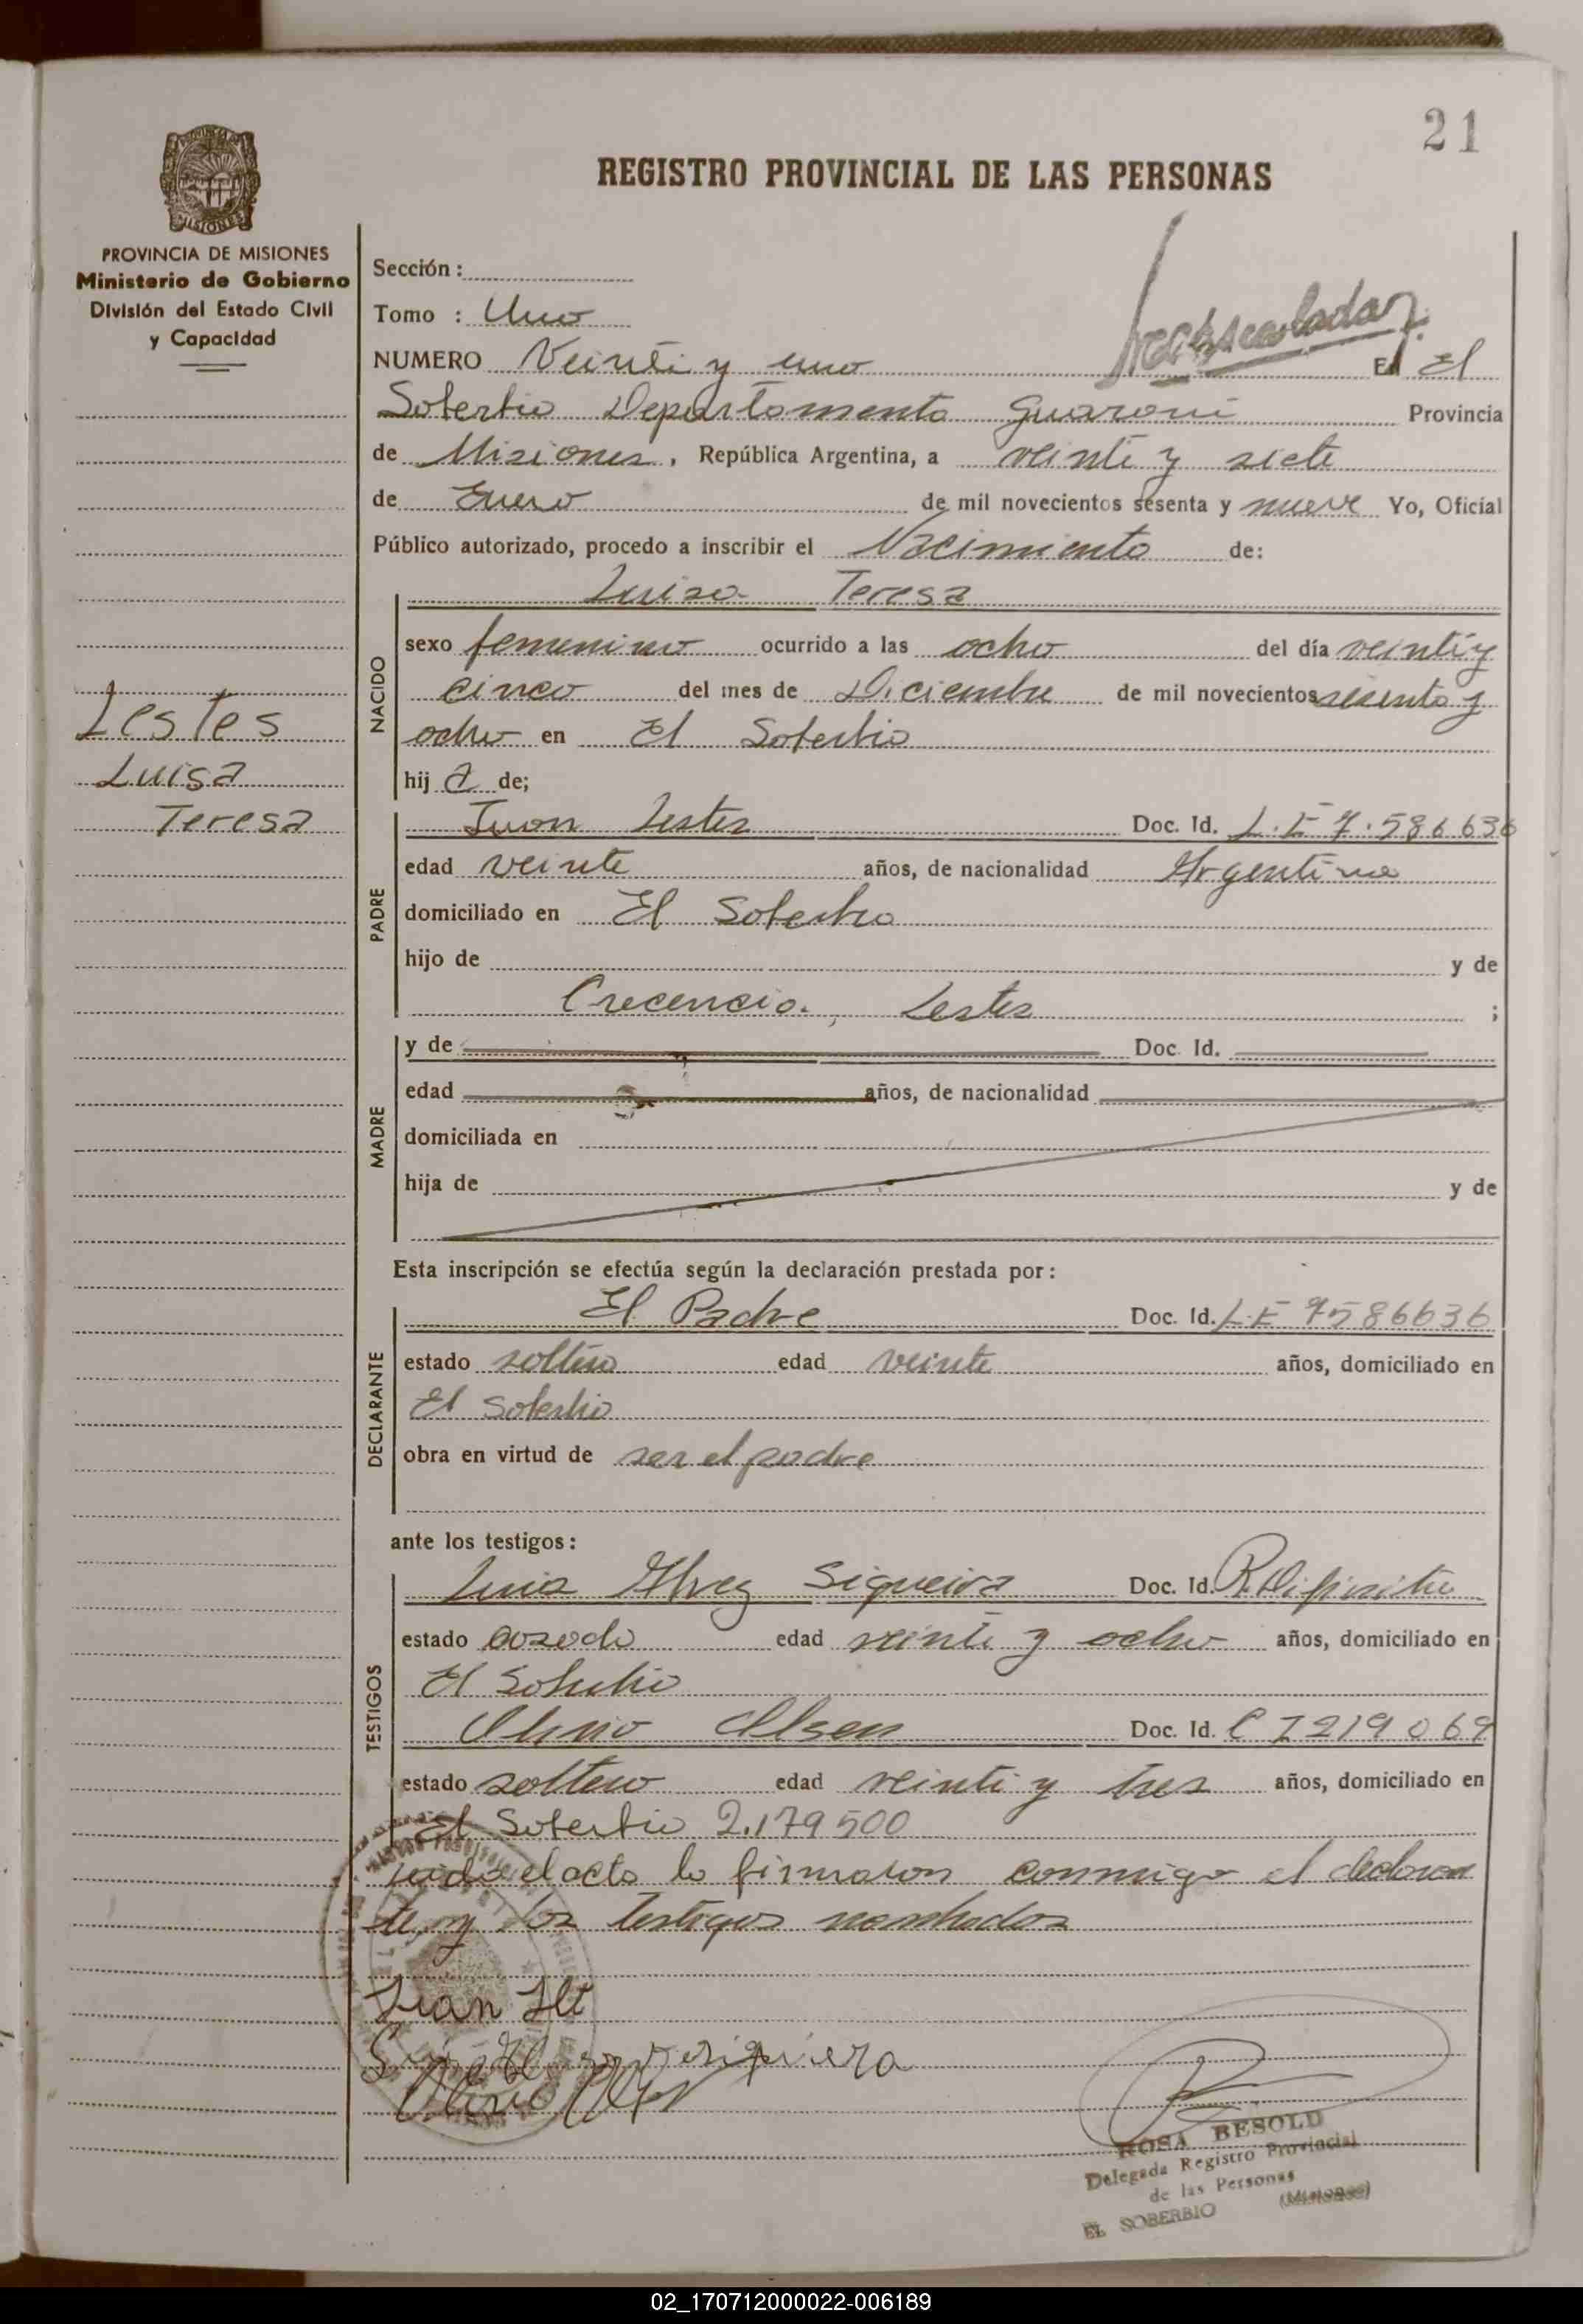 21
REGISTRO PROVINCIAL DE LAS PERSONAS
MISIONES
PROVINCIA DE MISIONES
Ministerio de Gobierno
División del Estado Civil
y Capacidad
Sección :
Tomo : Uno
NUMERO Veinti y uno En El
Soberbio Departamento Guaraní Provincia
de Misiones, República Argentina, a veinti y siete
de Enero de mil novecientos sesenta y nueve Yo, Oficial
Público autorizado, procedo a inscribir el Nacimiento de:
NACIDO
Luisa Teresa
sexo femenino ocurrido a las ocho del día veinti y
cinco del mes de Diciembre de mil novecientos sesenta y
ocho en El Soberbio
hij a de;
Lestes
Luisa
Teresa
PADRE
Juan Lestes Doc. Id. L.E 7.586.636
edad veinte años, de nacionalidad Argentina
domiciliado en El Soberbio
hijo de y de
Crecencia Lestes ;
MADRE
y de Doc. Id.
edad años, de nacionalidad
domiciliada en
hija de y de
Esta inscripción se efectúa según la declaración prestada por:
DECLARANTE
El Padre Doc. Id. L.E 7586636
estado soltero edad veinte años, domiciliado en
El Soberbio
obra en virtud de ser el padre
ante los testigos:
TESTIGOS
Luis Alvez Siqueira Doc. Id.
estado casado edad veinti y ocho años, domiciliado en
El Soberbio
Olsen Doc. Id. C I 219069
estado soltero edad veinti y tres años, domiciliado en
El Soberbio 2.179500
el acto lo firmaron conmigo el declaran
te y los testigos nombrados
Juan
ROSA BESOLD
Delegada Registro Provincial
de las Personas
EL SOBERBIO (Misiones)
02_170712000022-006189